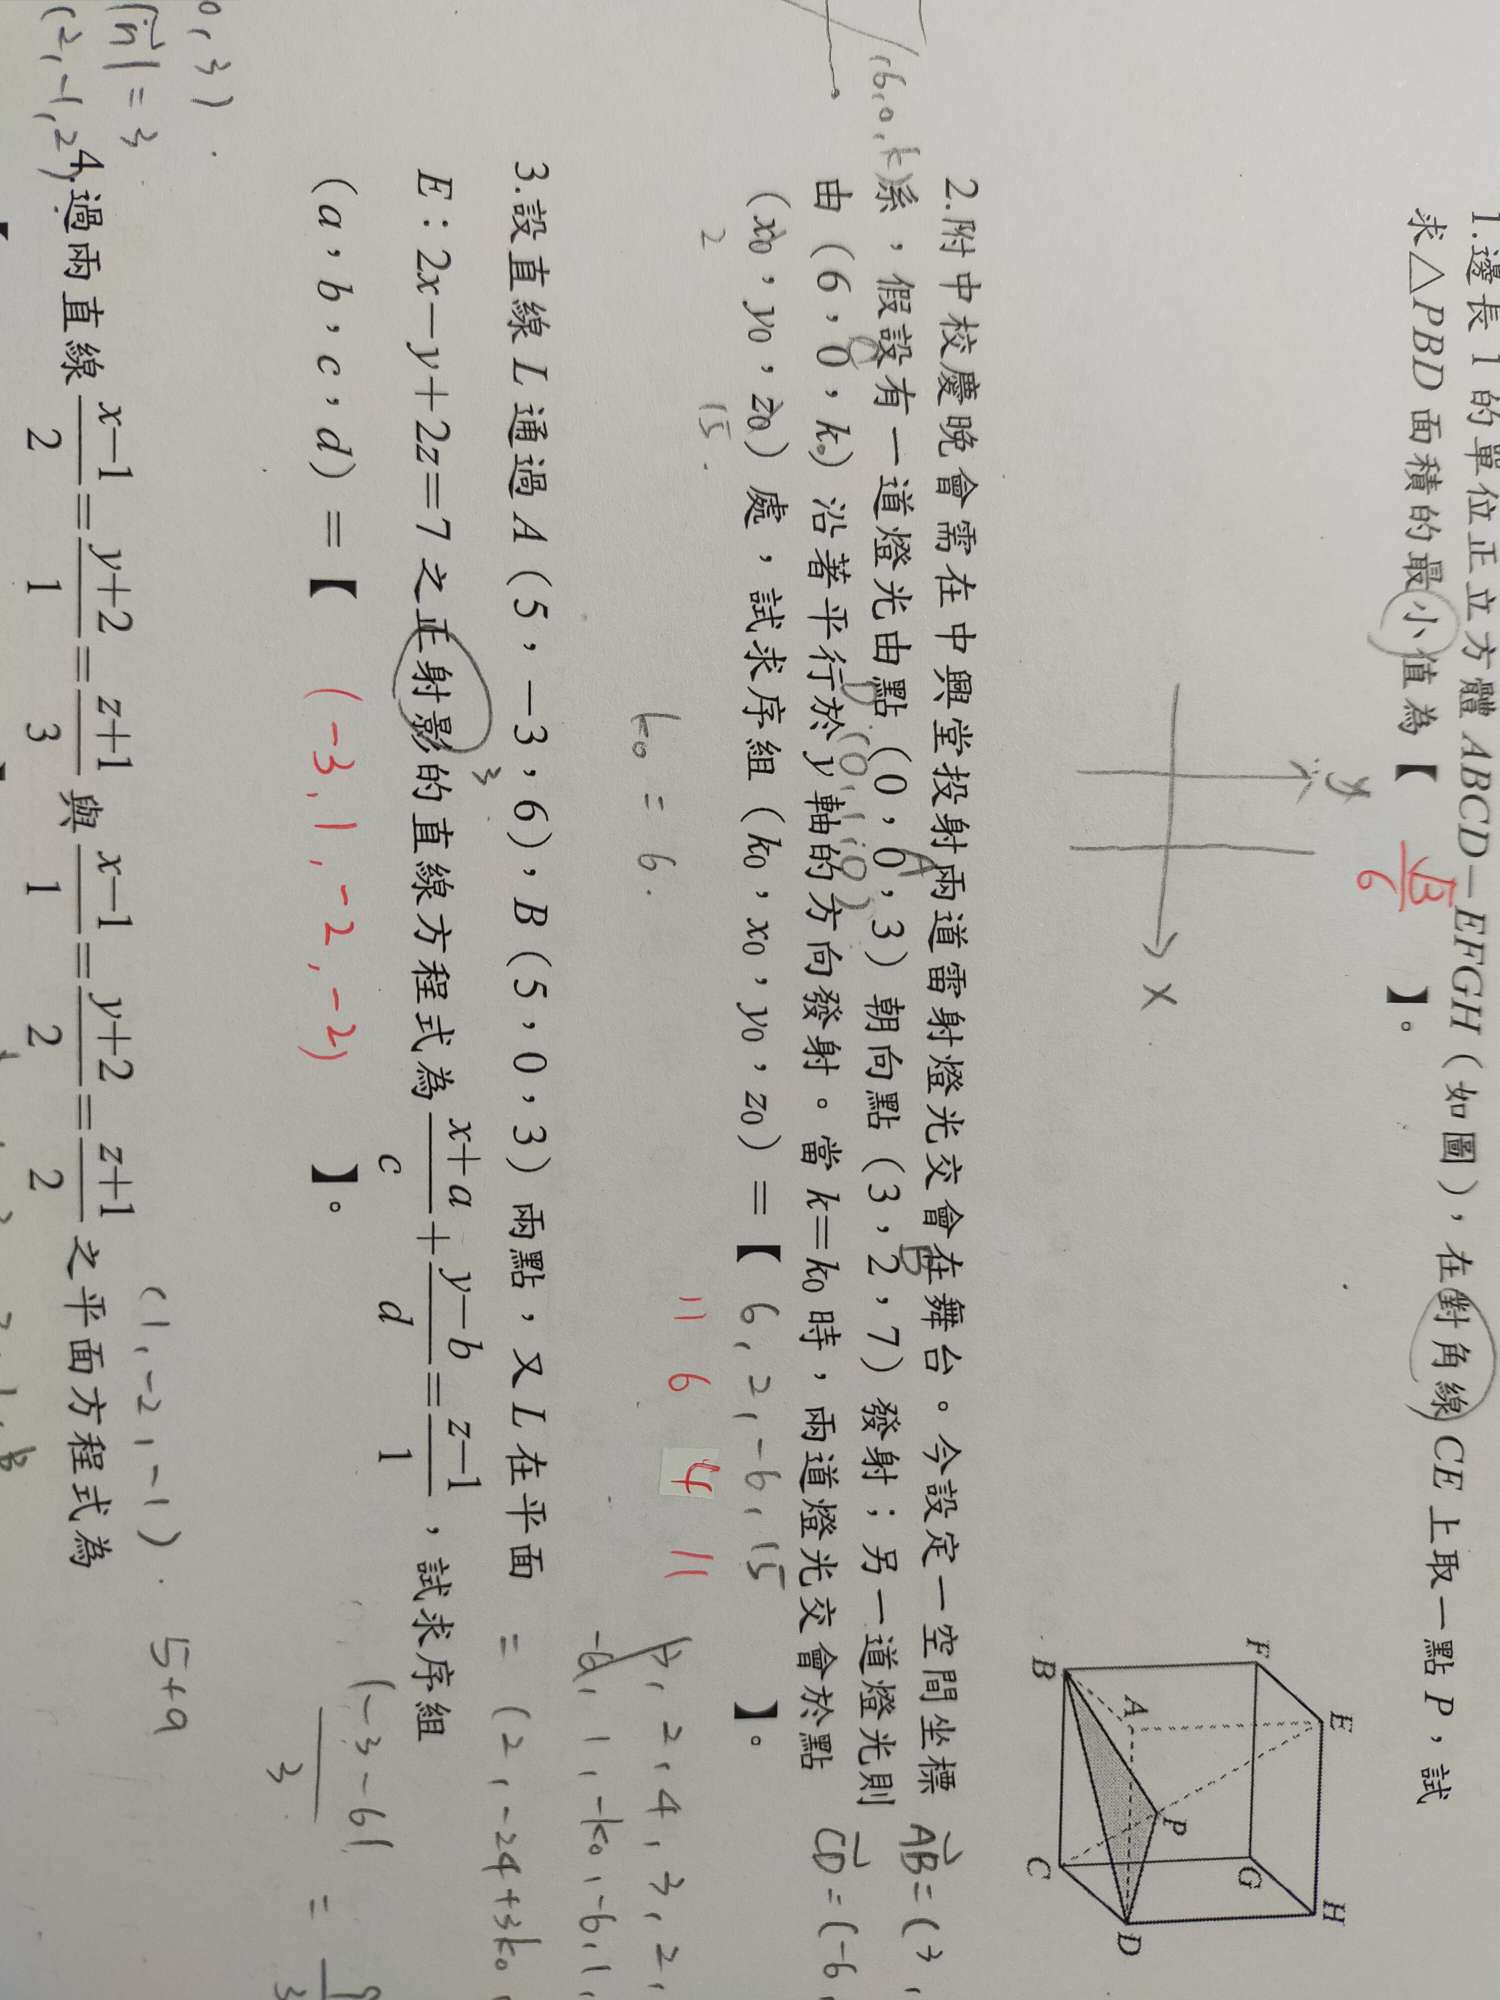 1.邊長 1 的單位正立方體 ABCD－EFGH（如圖），在對角線 CE 上取一點 P，試
求△PBD 面積的最小值為【 √3/6 】。
y
x
F E
B A
P
G H
C D
2.附中校慶晚會需在中興堂投射兩道雷射燈光交會在舞台。今設定一空間坐標
系，假設有一道燈光由點（0，0，3）朝向點（3，2，7）發射；另一道燈光則
由（6，0，k）沿著平行於 y 軸的方向發射。當 k＝k₀ 時，兩道燈光交會於點
（x₀，y₀，z₀）處，試求序組（k₀，x₀，y₀，z₀）＝【 6, 2, -6, 15 】。
11 6 4 11
(6, 0, k)
A B
AB = (3,
CD = (-6,
2 15.
k₀ = 6.
3, 2, 4, 3, 2,
1, -k₀, -6, 1,
= (2, -24+3k₀,
3.設直線 L 通過 A（5，－3，6），B（5，0，3）兩點，又 L 在平面
E：2x－y＋2z＝7 之正射影的直線方程式為 (x+a)/c + (y−b)/d = (z−1)/1，試求序組
（a，b，c，d）＝【 (-3, 1, -2, -2) 】。
3
|-3-6|/3 =
0, 3)
|n| = 3
(2, -1, 2)
4.過兩直線 (x−1)/2 = (y+2)/1 = (z+1)/3 與 (x−1)/1 = (y+2)/2 = (z+1)/2 之平面方程式為
【 】
(1, -2, -1).
5+9